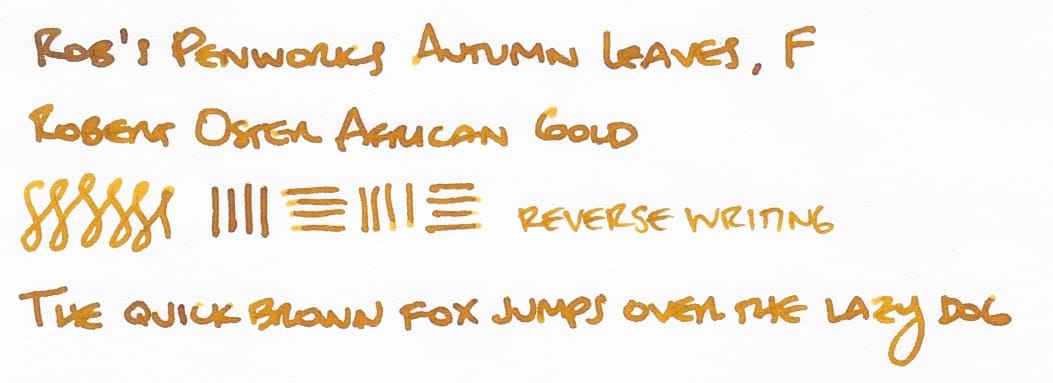 Rob's Penworks Autumn Leaves, F
Robert Oster African Gold
Reverse Writing
The quick brown fox jumps over the lazy dog